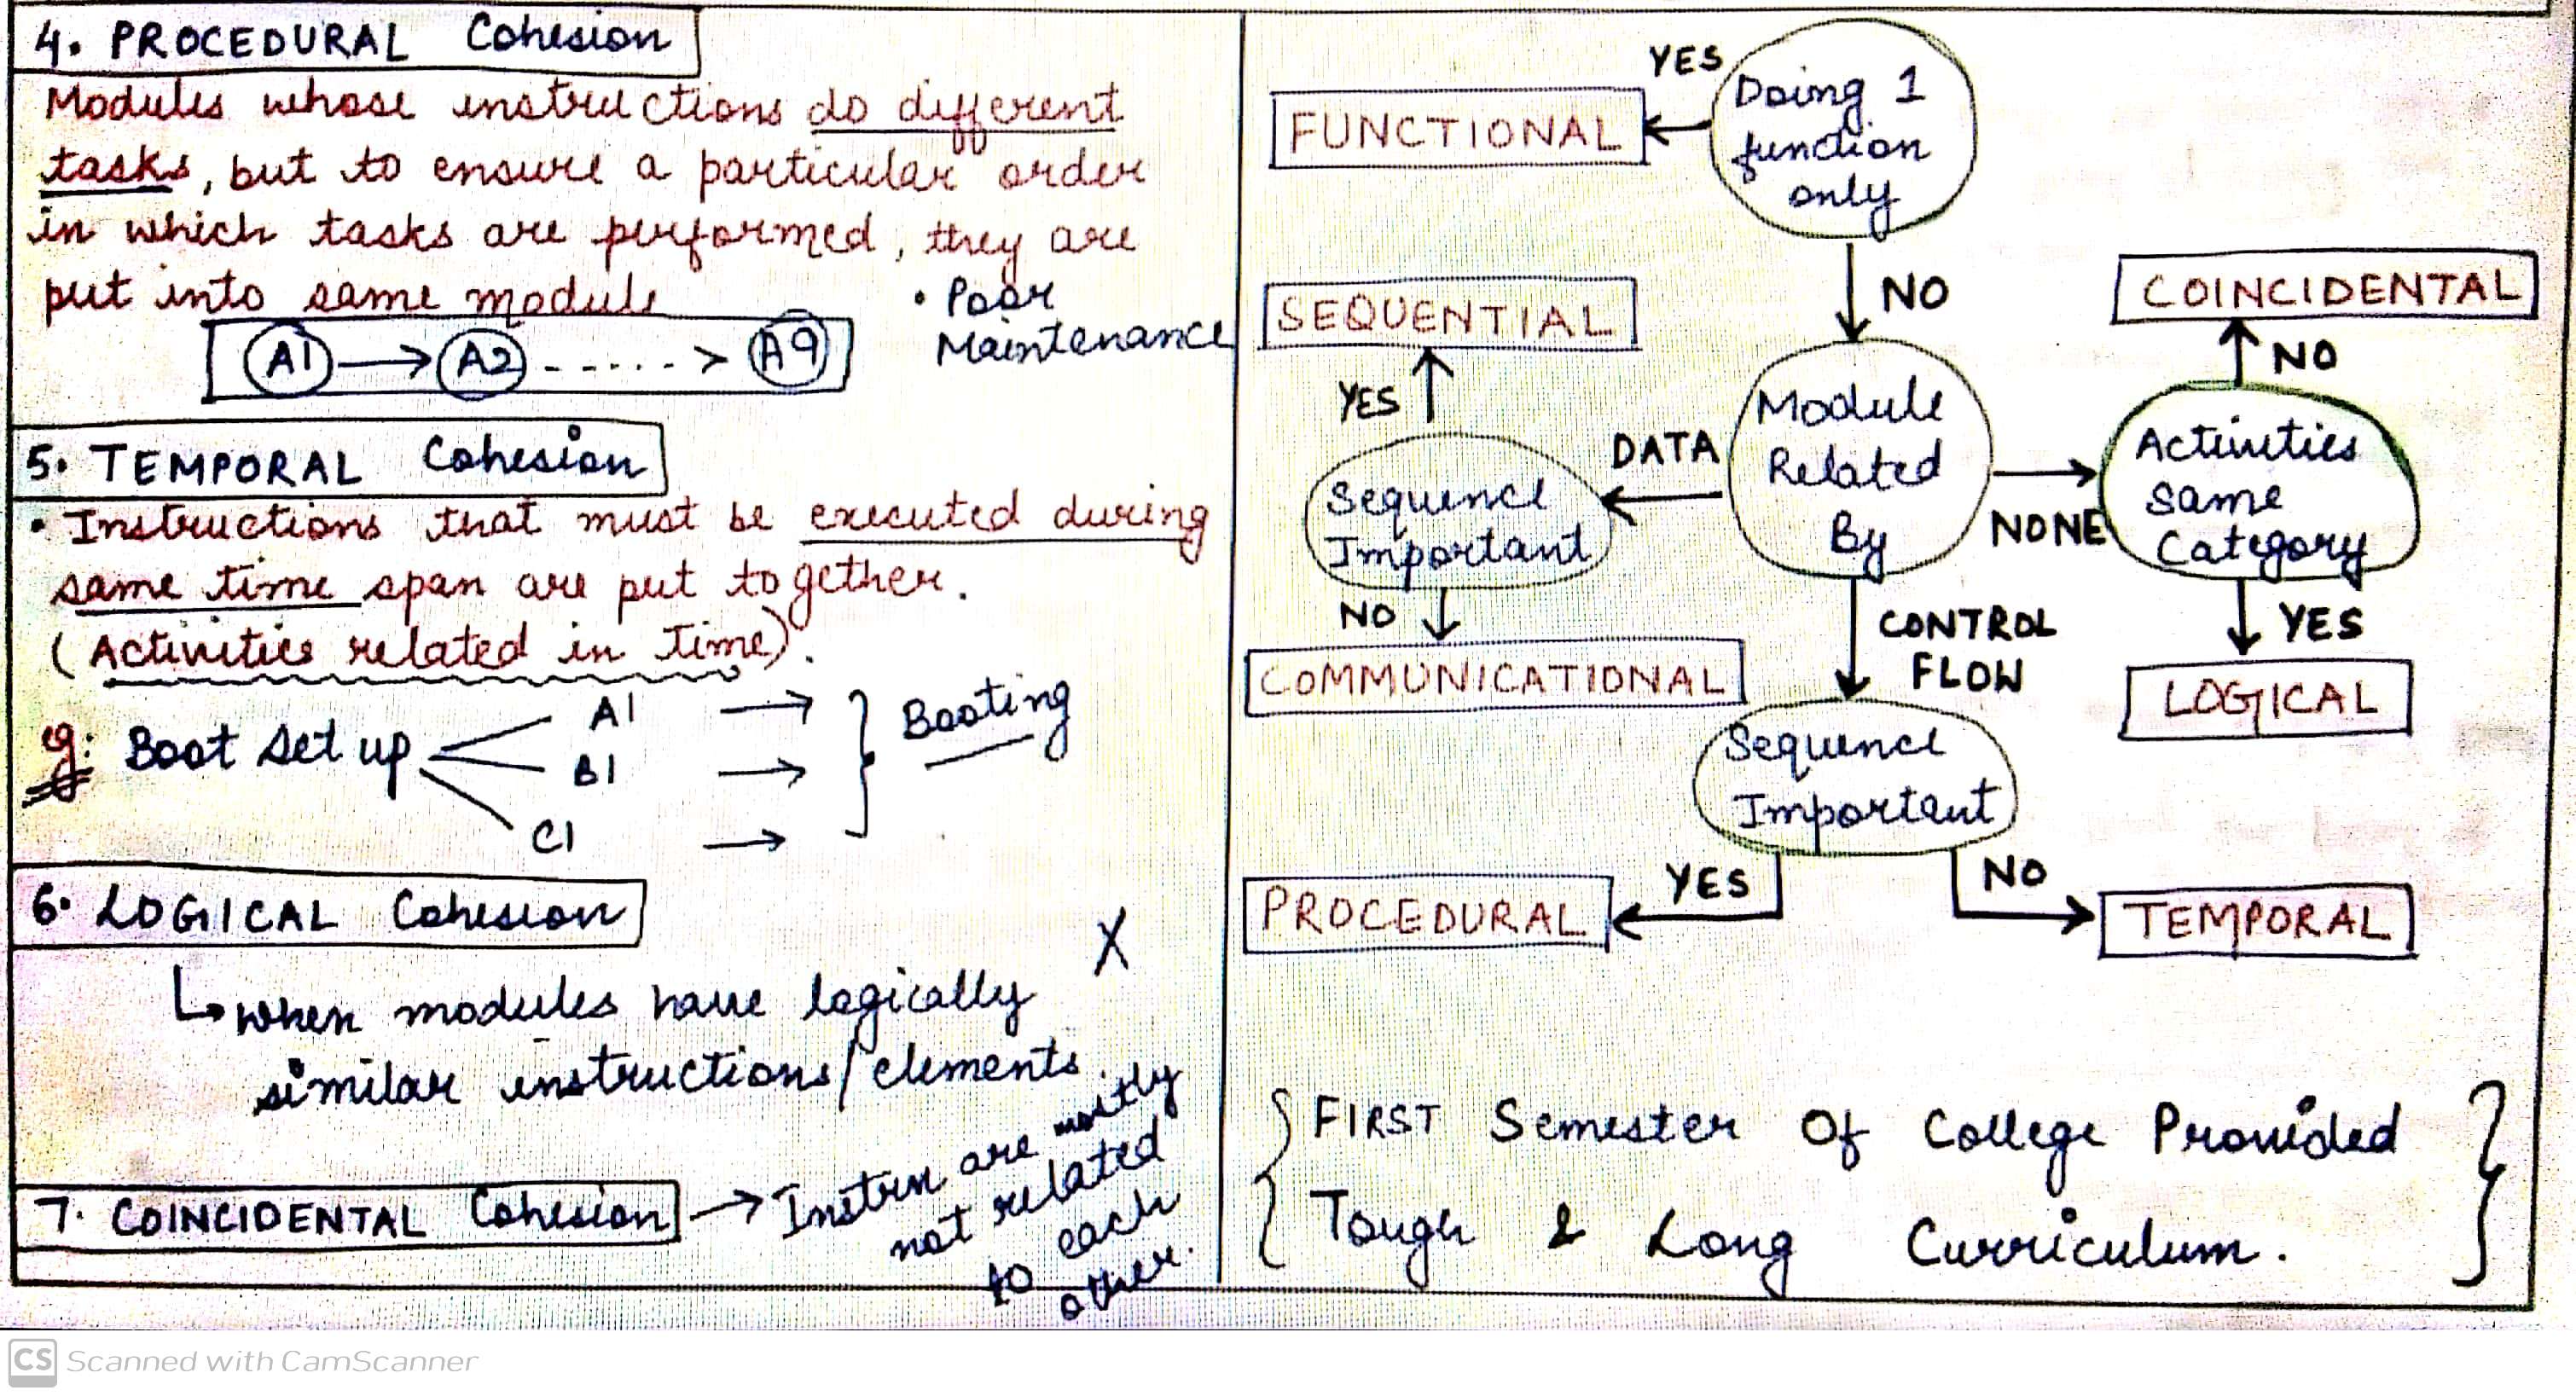 4. PROCEDURAL Cohesion
Modules whose instructions do different
tasks, but to ensure a particular order
in which tasks are performed, they are
put into same module
• Poor
Maintenance
A1 A2 A9
5. TEMPORAL Cohesion
• Instructions that must be executed during
same time span are put together.
(Activities related in Time).
eg: Boot set up
A1
B1
C1
Booting
6. LOGICAL Cohesion
X
when modules have logically
similar instructions/elements.
7. COINCIDENTAL Cohesion → Instrn are mostly
not related
to each
other.
YES
Doing 1
function
only
FUNCTIONAL
NO
SEQUENTIAL
COINCIDENTAL
YES
NO
Module
Related
By
DATA
NONE
Sequence
Important
Activities
Same
Category
NO
CONTROL
FLOW
YES
COMMUNICATIONAL
LOGICAL
Sequence
Important
YES
NO
PROCEDURAL
TEMPORAL
{ FIRST Semester Of College Provided
Tough & Long Curriculum. }
CS Scanned with CamScanner